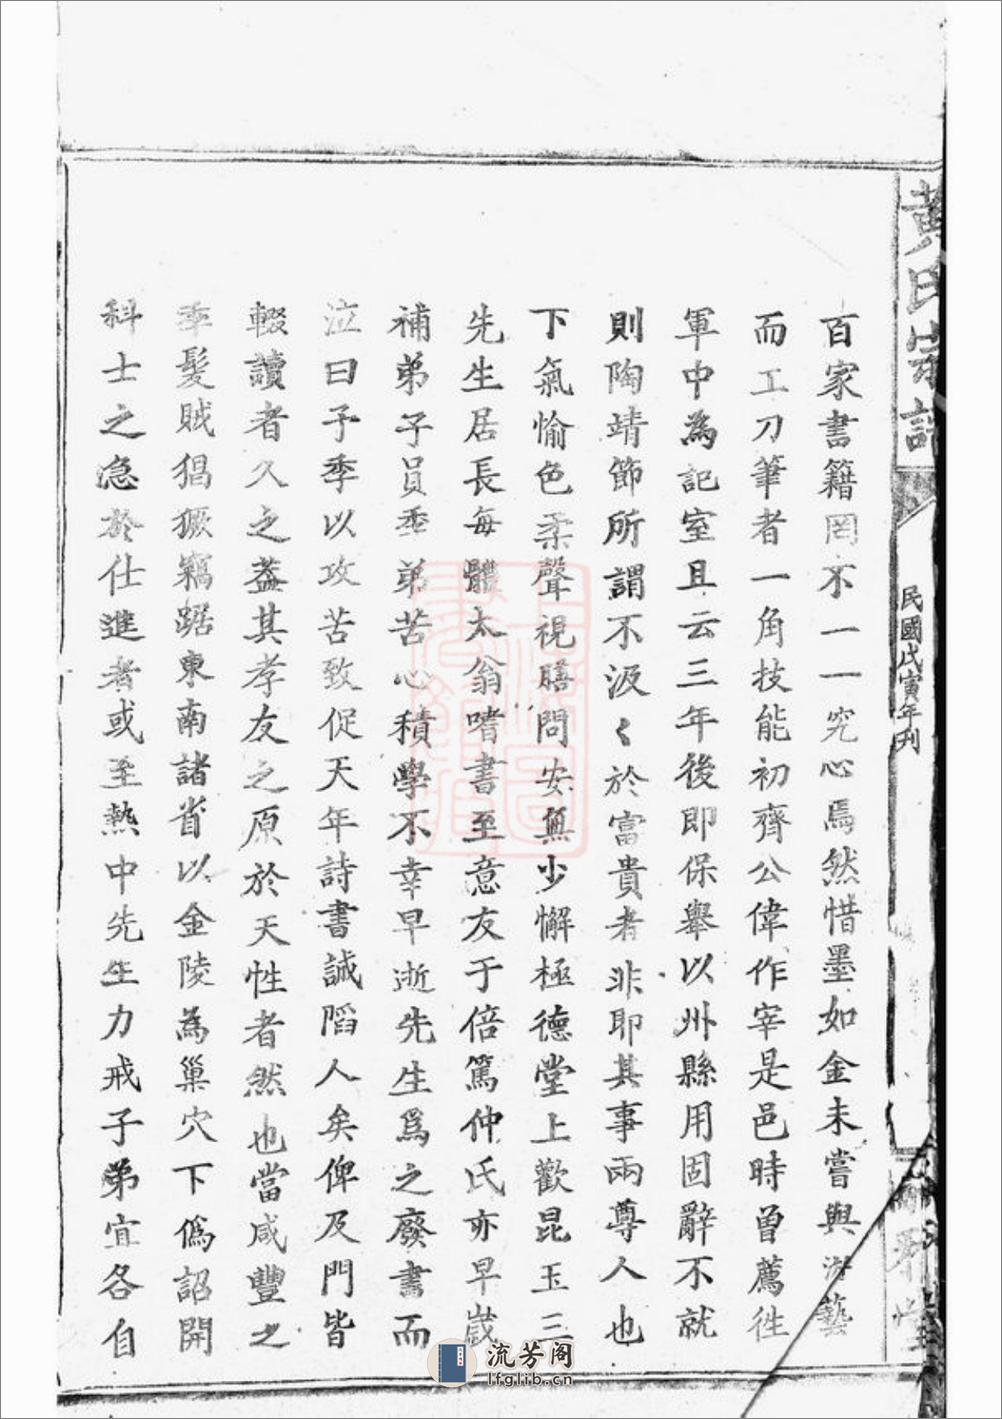 黃氏宗譜
民國戊寅年刊
百家書籍罔不一一究心焉然惜墨如金未嘗與涉藝
而工刀筆者一角技能初齊公偉作宰是邑時曾薦徃
軍中為記室且云三年後即保舉以州縣用固辭不就
則陶靖節所謂不汲〻於富貴者非耶其事兩尊人也
下氣愉色柔聲視膳問安無少懈極德堂上歡昆玉三
先生居長每體太翁嗜書至意友于倍篤仲氏亦早歲
補弟子員季弟苦心積學不幸早逝先生爲之廢書而
泣曰予季以攻苦致促天年詩書誠謟人矣俾及門皆
輟讀者久之葢其孝友之原於天性者然也當咸豐之
季髮賊猖獗竊踞東南諸省以金陵為巢穴下僞詔開
科士之急於仕進者或至熱中先生力戒子弟宜各自
流芳阁
lfglib.cn